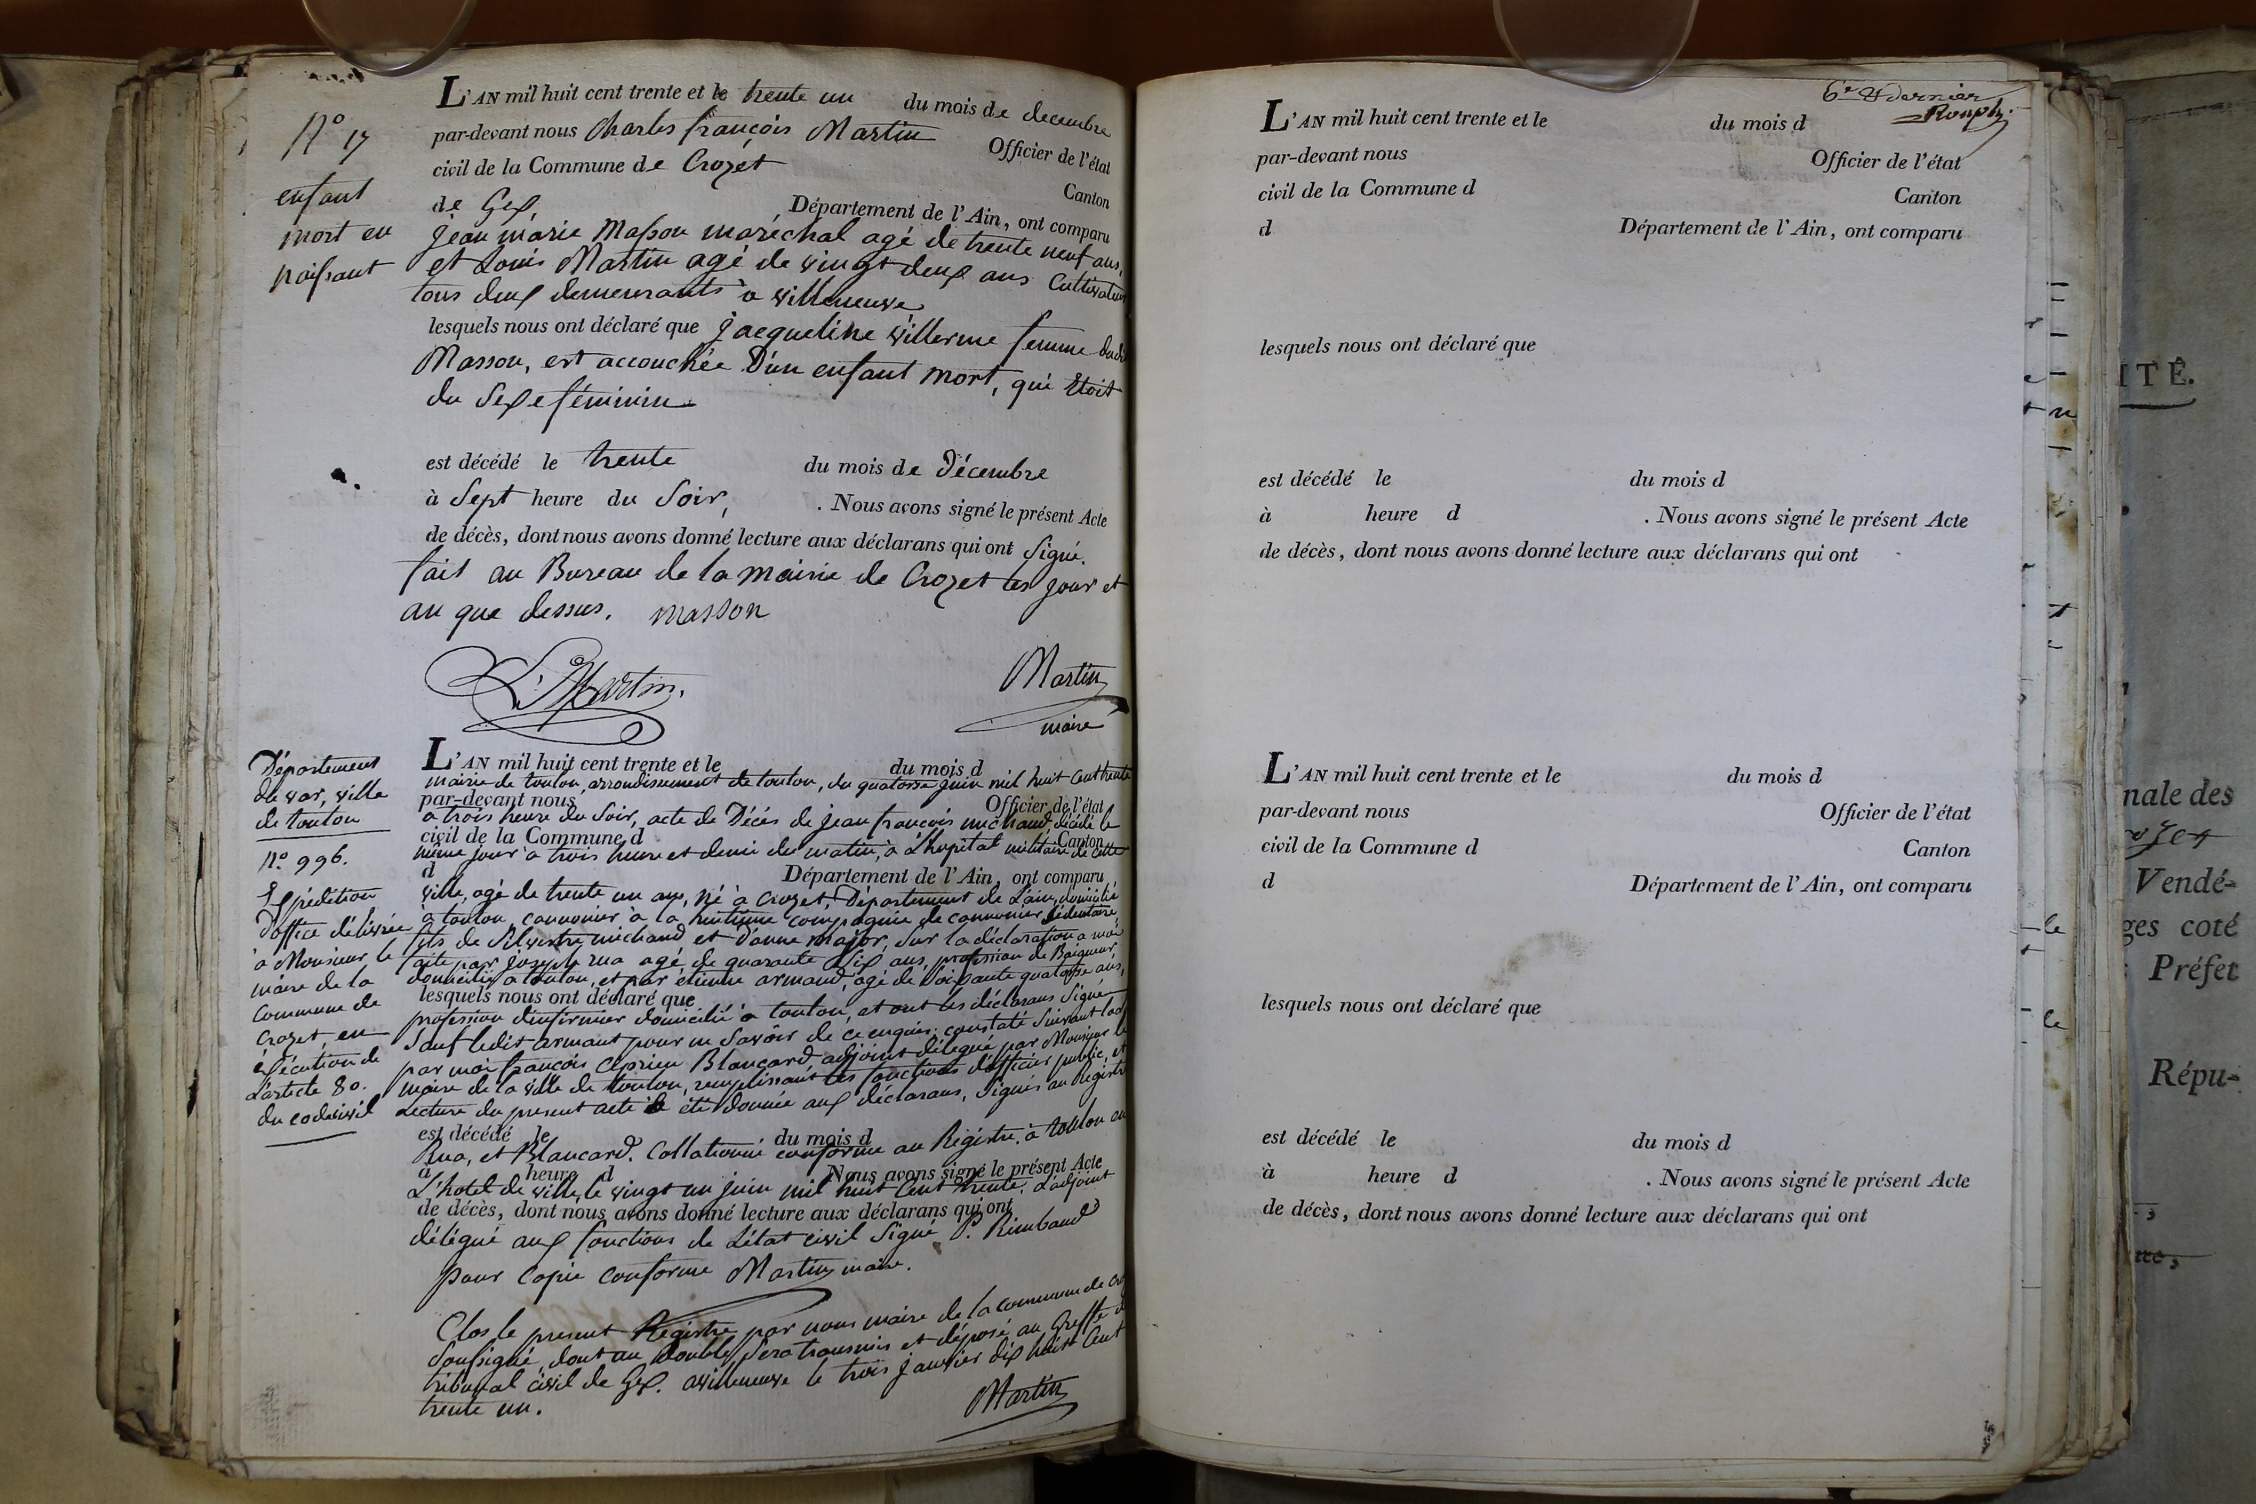 N° 17
enfant
mort en
naissant
L'AN mil huit cent trente et le trente un du mois de decembre
par-devant nous Charles françois Martin Officier de l'état
civil de la Commune de Crozet Canton
de Gex Département de l'Ain, ont comparu
jean marie Masson maréchal agé de trente neuf ans,
et Louis Martin agé de vingt deux ans Cultivateur
tous deux demeurants à villeneuve
lesquels nous ont déclaré que jacqueline villerme femme dudit
Masson, est accouchée D'un enfant mort, qui étoit
du Sexe féminin
est décédé le trente du mois de Décembre
à Sept heure du Soir, . Nous avons signé le présent Acte
de décès, dont nous avons donné lecture aux déclarans qui ont Signé.
fait au Bureau de la mairie de Crozet les jour et
an que dessus. masson
L. Martin.
Martin
maire
Département
du var, ville
de toulon
N° 996.
Expédition
D'office délivrée
à Monsieur le
maire de la
commune de
Crozet, en
éxécution de
L'article 80.
du code civil
L'AN mil huit cent trente et le du mois d
mairie de toulon, arrondissement de toulon, du quatorze juin mil huit cent trente
par-devant nous Officier de l'état
à trois heure du Soir, acte de Décés de jean françois michaud, décédé le
civil de la Commune d Canton
même jour à trois heure et demi du matin, à L'hopital militaire de cette
d Département de l'Ain, ont comparu
ville, agé de trente un ans, né à Crozet, Département de L'ain, domicilié
à toulon, cannonier à la huitième compagnie de cannonier Sédentaire,
fils de Silvestre michaud et D'anne major, Sur la déclaration à moi
faite par joseph rua agé de quarante Six ans, profession de Baigneur,
domicilié à toulon, et par étienne armand, agé de Soixante quatorze ans,
lesquels nous ont déclaré que
profession d'infirmier domicilié à toulon, et ont les déclarans Signé
Sauf ledit armant pour ne Savoir de ce enquis; constaté Suivant la
par moi françois Ciprien Blancard adjoint délégué par Monsieur le
maire de la ville de toulon, remplissant les fonctions d'officier public, et
Lecture du present acte à été donnée aux déclarans, Signés au Registre
est décédé le du mois d
Rua, et Blancard. Collationné conforme au Régistre. à toulon en
à heure d . Nous avons signé le présent Acte
L'hotel de ville, le vingt un juin mil huit cent trente. L'adjoint
de décès, dont nous avons donné lecture aux déclarans qui ont
délégué aux fonctions de L'état civil Signé P. Rimbaud
pour copie conforme Martin maire.
Clos le present Régistre par nous maire de la commune de
Soussigné, dont un Double Sera transmis et déposé au Greffe
tribunal civil de Gex. a villeneuve le trois janvier dix huit Cent
trente un.
Martin
6e & dernier
L'AN mil huit cent trente et le du mois d
par-devant nous Officier de l'état
civil de la Commune d Canton
d Département de l'Ain, ont comparu
lesquels nous ont déclaré que
est décédé le du mois d
à heure d . Nous avons signé le présent Acte
de décès, dont nous avons donné lecture aux déclarans qui ont
L'AN mil huit cent trente et le du mois d
par-devant nous Officier de l'état
civil de la Commune d Canton
d Département de l'Ain, ont comparu
lesquels nous ont déclaré que
est décédé le du mois d
à heure d . Nous avons signé le présent Acte
de décès, dont nous avons donné lecture aux déclarans qui ont
ITÉ.
nale des
Vendé-
ges coté
Préfet
Répu-